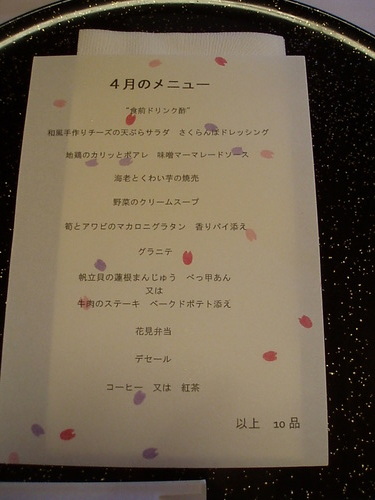 ４月のメニュー
“食前ドリンク酢”
和風手作りチーズの天ぷらサラダ　さくらんぼドレッシング
地鶏のカリッとポアレ　味噌マーマレードソース
海老とくわい芋の焼売
野菜のクリームスープ
筍とアワビのマカロニグラタン　香りパイ添え
グラニテ
帆立貝の蓮根まんじゅう　べっ甲あん
又は
牛肉のステーキ　ベークドポテト添え
花見弁当
デセール
コーヒー　又は　紅茶
以上　10 品